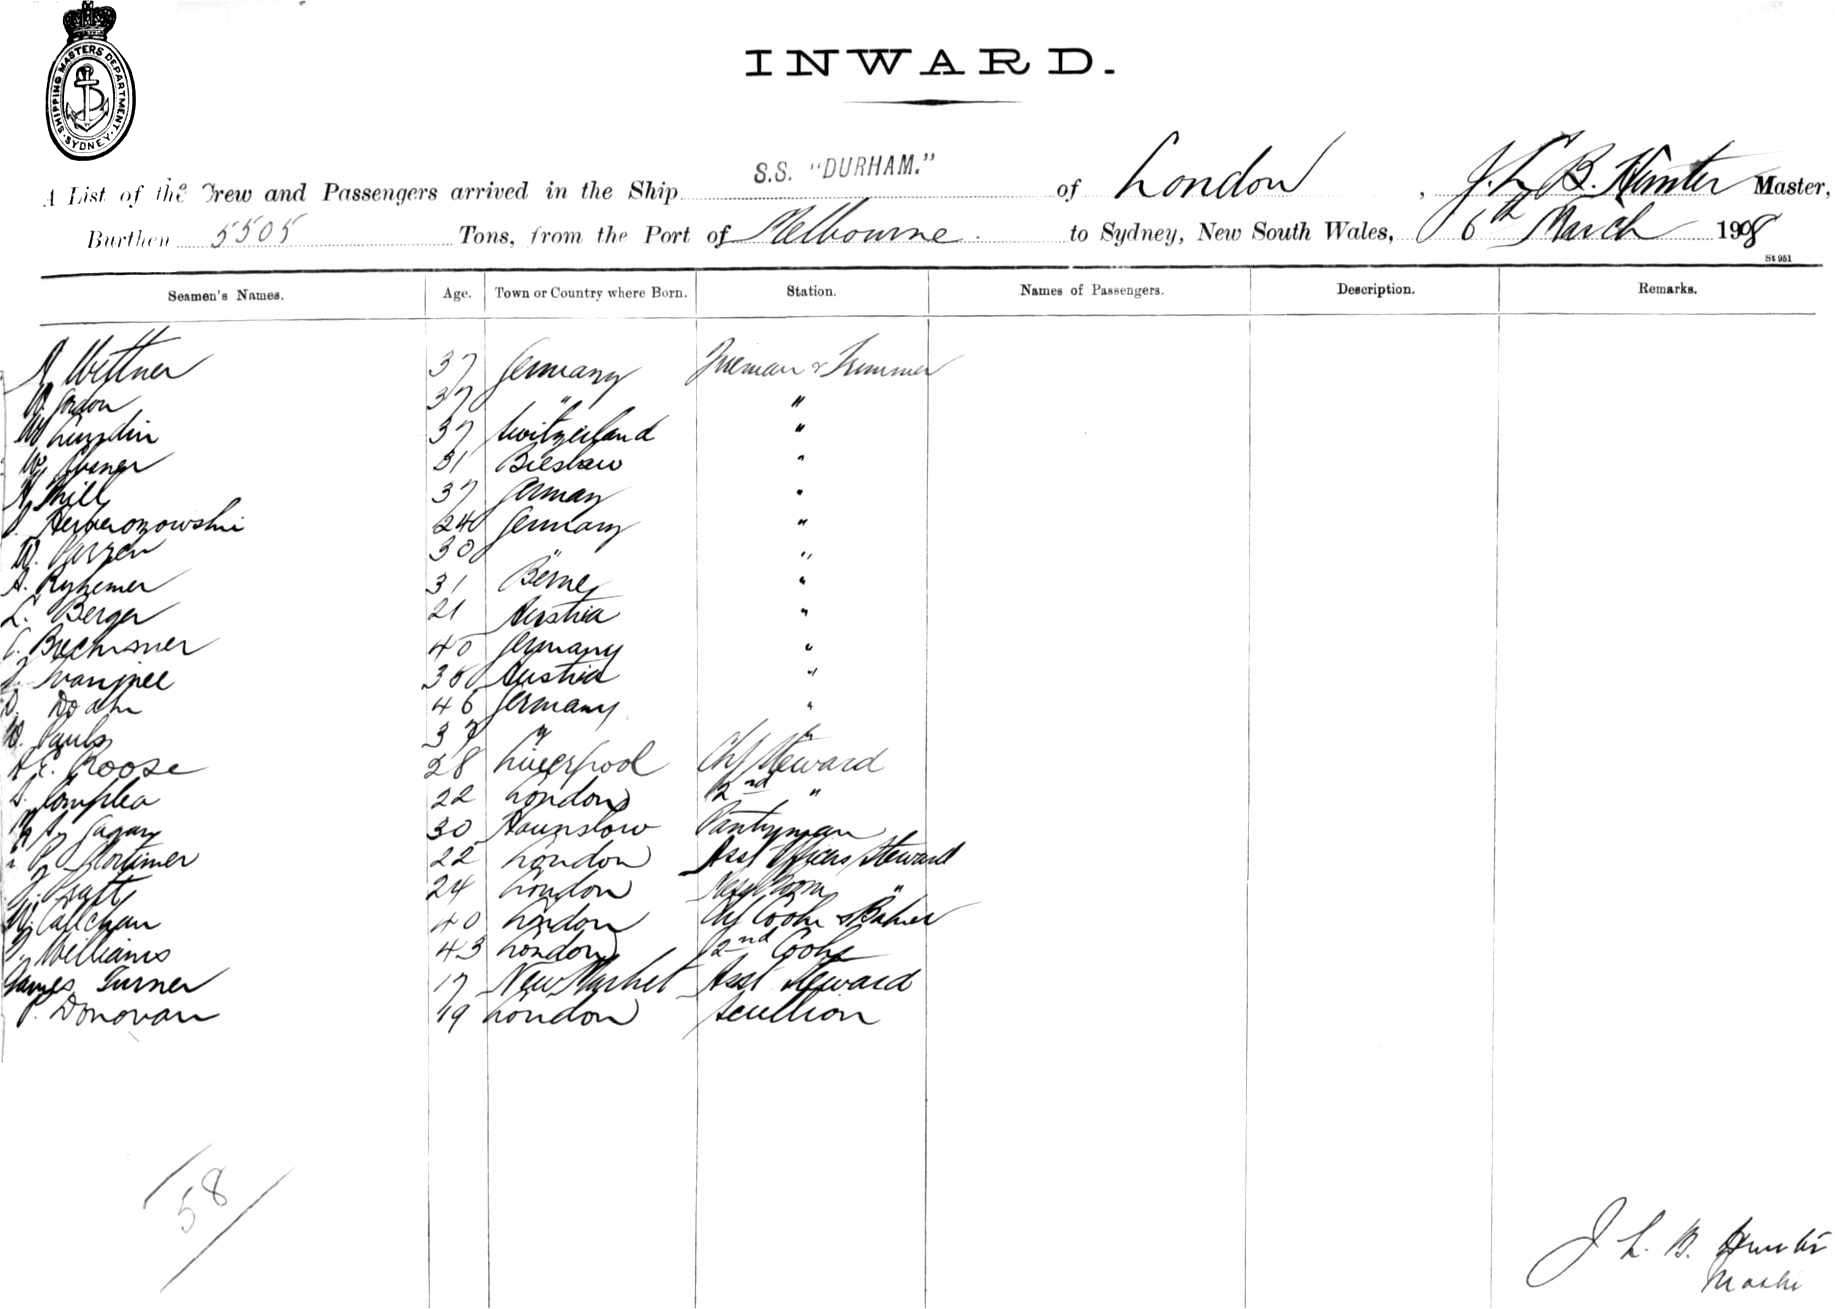 SHIPPING MASTERS DEPARTMENT
SYDNEY
INWARD.
A List of the Crew and Passengers arrived in the Ship S.S. "DURHAM." of London, J. L. B. Hunter Master,
Burthen 5505 Tons, from the Port of Melbourne. to Sydney, New South Wales, 6th March 1908
St 951
Seamen's Names. Age. Town or Country where Born. Station. Names of Passengers. Description. Remarks.
Wettner 37 Germany Fireman & Trimmer
Gordon 37 " "
37 Switzerland "
31 Breslaw "
Thill 37 Germany "
24 Germany "
30 " "
A. Ryhemer 31 Berne "
L. Berger 21 Austria "
40 Germany "
38 Austria "
46 Germany "
Pauls 37 " "
Roose 28 Liverpool Chf Steward
22 London 2nd "
30 Hounslow Pantryman
Mortimer 22 London Asst Officers Steward
Pratt 24 London Mess Room "
Callghan 40 London Chf Cook & Baker
Williams 43 London 2nd Cook
James Turner 17 New Market Asst Steward
P. Donovan 19 London Scullion
58
J. L. B. Hunter
Master